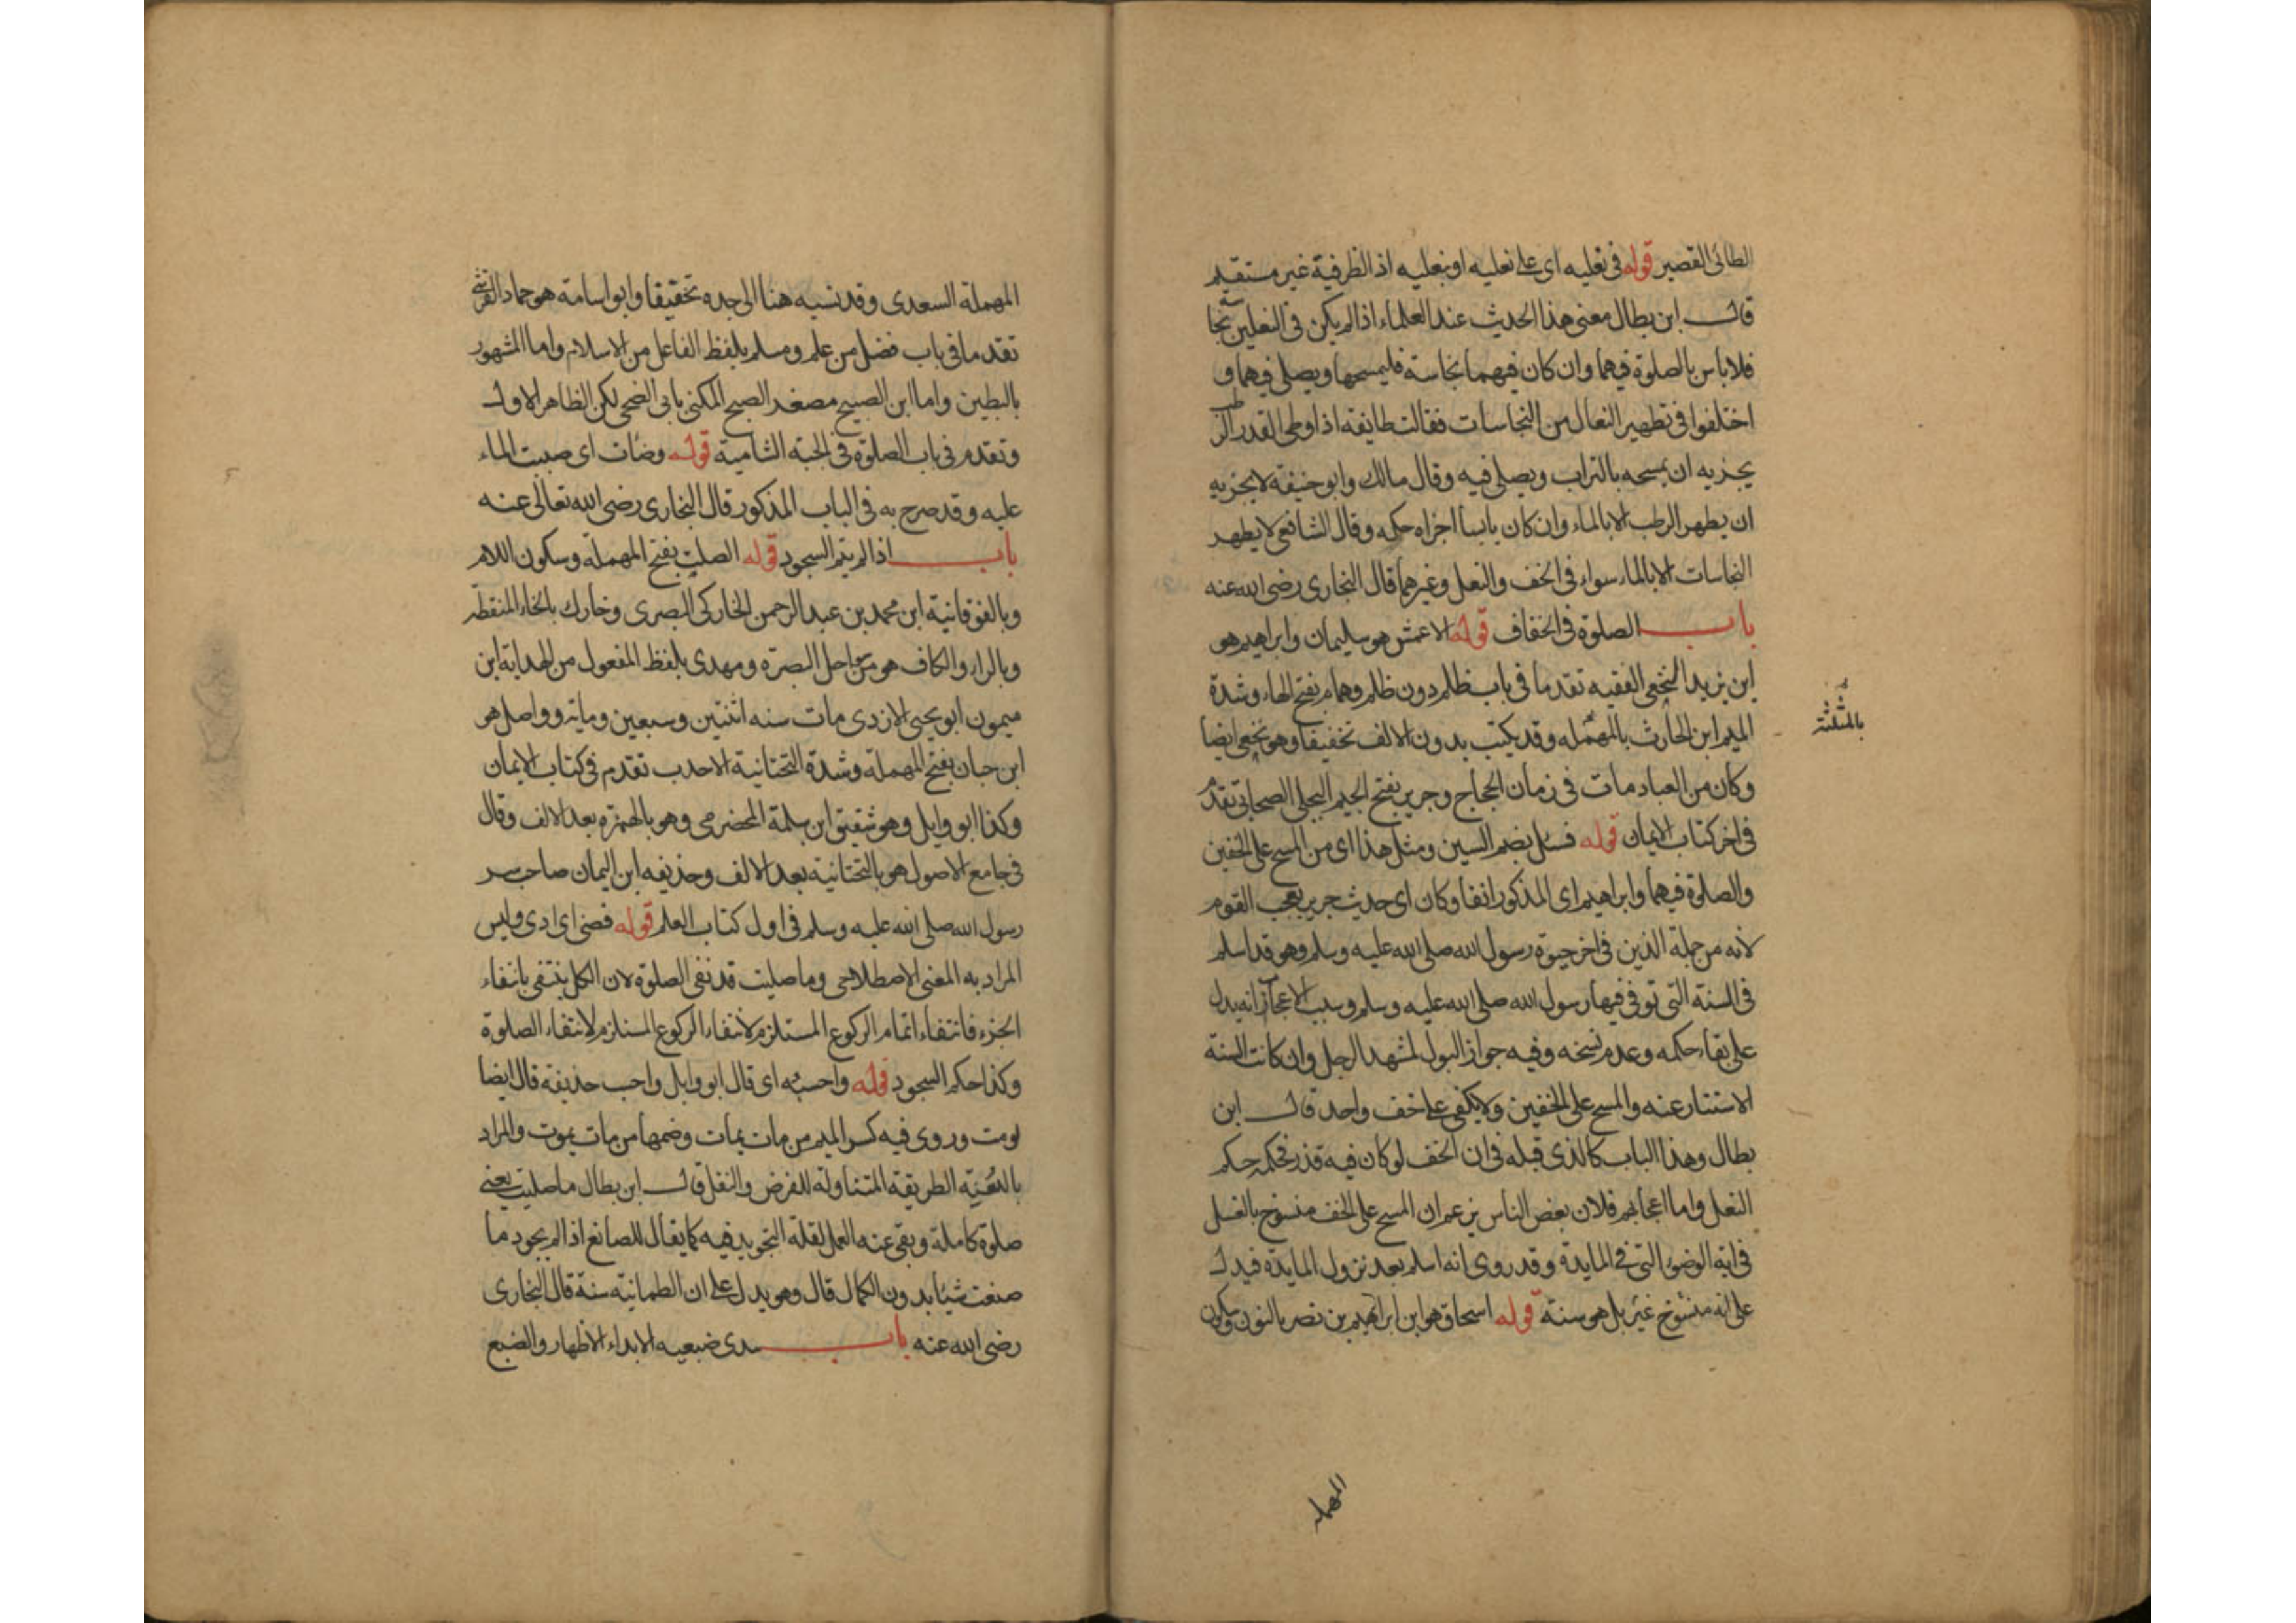 الطائى القصير قوله فى نعليه اى على نعليه او بنعليه اذ الظرفية غير مستقيم
قال ابن بطال معنى هذا الحديث عند العلماء اذا لم يكن فى النعلين نجاسة
فلا باس بالصلوة فيهما وان كان فيهما نجاسة فليمسحها ويصلى فيهما و
اختلفوا فى تطهير النعال من النجاسات فقالت طائفة اذا وطى القدر الرطب
يجزيه ان يمسحه بالتراب ويصلى فيه وقال مالك وابو حنيفة لا يجزيه
ان يطهر الرطب الا بالماء وان كان يابسا اجزاه حكه وقال الشافعى لا يطهر
النجاسات الا بالماء سواء فى الخف والنعل وغيرهما قال البخارى رضى الله عنه
باب الصلوة فى الخفاف قوله الاعمش هو سليمان وابراهيم هو
ابن يزيد النخعى الفقيه تقدما فى باب ظلم دون ظلم وهمام بفتح الهاء وشدة
الميم ابن الحارث بالمهمله وقد يكتب بدون الالف تخفيفا وهو نخعى ايضا
بالمثلثة
وكان من العباد مات فى زمان الحجاج وجرير بفتح الجيم البجلى الصحابى تقدم
فى اخر كتاب الايمان قوله فسئل بضم السين ومثل هذا اى من المسح على الخفين
والصلوة فيهما وابراهيم اى المذكور انفا وكان اى حديث جرير يعجب القوم
لانه من جملة الذين فى اخر حيوة رسول الله صلى الله عليه وسلم وهو قد اسلم
فى السنة التى توفى فيها رسول الله صلى الله عليه وسلم وسبب الاعجاز انه يدل
على بقاء حكمه وعدم نسخه وفيه جواز البول لمشهد الرجل وان كانت السنة
الاستتار عنه والمسح على الخفين ولا يكفى على خف واحد قال ابن
بطال وهذا الباب كالذى قبله فى ان الخف لو كان فيه قذر فحكمه حكم
النعل واما اعجابهم فلان بعض الناس يزعم ان المسح على الخف منسوخ بالغسل
فى اية الوضوء التى فى المايدة وقد روى انه اسلم بعد نزول المايدة فيدل
على انه منسوخ غير بل هو سنة قوله اسحاق هو ابن ابراهيم بن نصر بالنون وسكون
المهملة
المهملة السعدى وقد نسبه هنا الى جده تخفيفا وابو اسامة هو حماد القرشى
تقدما فى باب فضل من علم ومسلم بلفظ الفاعل من الاسلام واما المشهور
بالبطين واما ابن الصبيح مصغد الصبح المكنى بابى الضحى لكن الظاهر الاول
وتقدم فى باب الصلوة فى الجبة الشامية قوله وضأت اى صببت الماء
عليه وقد صرح به فى الباب المذكور قال البخارى رضى الله تعالى عنه
باب اذا لم يتم السجود قوله الصلت بفتح المهملة وسكون اللام
وبالفوقانية ابن محمد بن عبد الرحمن الخاركى البصرى وخارك بالخاء المنقطة
وبالراء والكاف هو من سواحل البصرة ومهدى بلفظ المفعول من الهداية ابن
ميمون ابو يحيى الازدى مات سنه اثنتين وسبعين وماية وواصل هو
ابن حبان بفتح المهملة وشدة التحتانية الاحدب تقدم فى كتاب الايمان
وكذا ابو وايل وهو شقيق ابن سلمة الحضرمى وهو بالهمزه بعد الالف وقال
فى جامع الاصول هو بالتحتانية بعد الالف وحذيفه ابن اليمان صاحب سر
رسول الله صلى الله عليه وسلم فى اول كتاب العلم قوله قضى اى ادى وليس
المراد به المعنى الاصطلاحى وما صليت قد نفى الصلوة لان الكل ينتفى بانتفاء
الجزء فانتفاء اتمام الركوع المستلزم لانتفاء الركوع المستلزم لانتفاء الصلوة
وكذا حكم السجود قوله واحسبه اى قال ابو وايل واحب حذيفة قال ايضا
لومت وروى فيه كسر الميم من مات يمات وضمها من مات يموت والمراد
بالسُنّة الطريقة المتناولة للفرض والنفل قال ابن بطال ما صليت يعنى
صلوة كاملة وبقى عنه العمل لقلة التجويد فيه كما يقال للصانع اذا لم يجود ما
صنعت شيئا بدون الكمال قال وهو يدل على ان الطمانية سنة قال البخارى
رضى الله عنه باب يبدى ضبعيه الابداء الاظهار والضبع